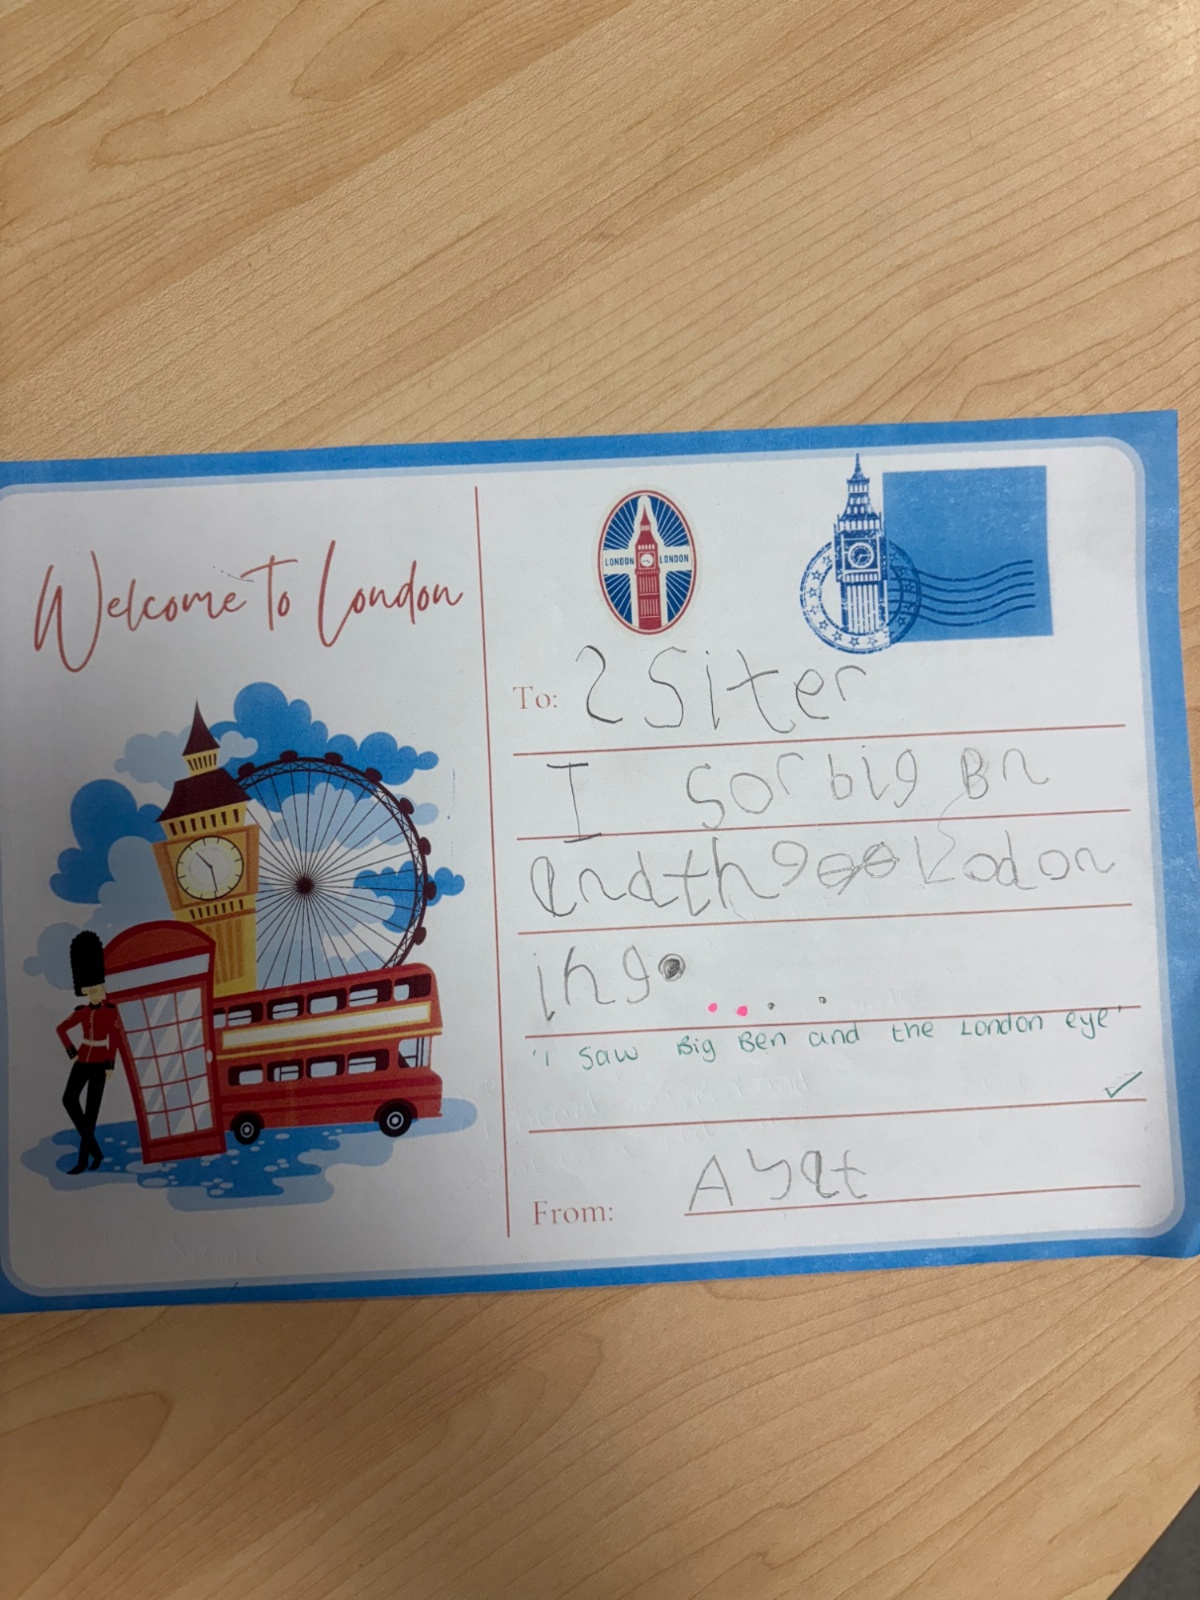 Welcome To London
LONDON LONDON
To: 2 Siter
I sor big Bn
and th Lodon
ihg.
'I saw Big Ben and the London eye'
From: Ayat